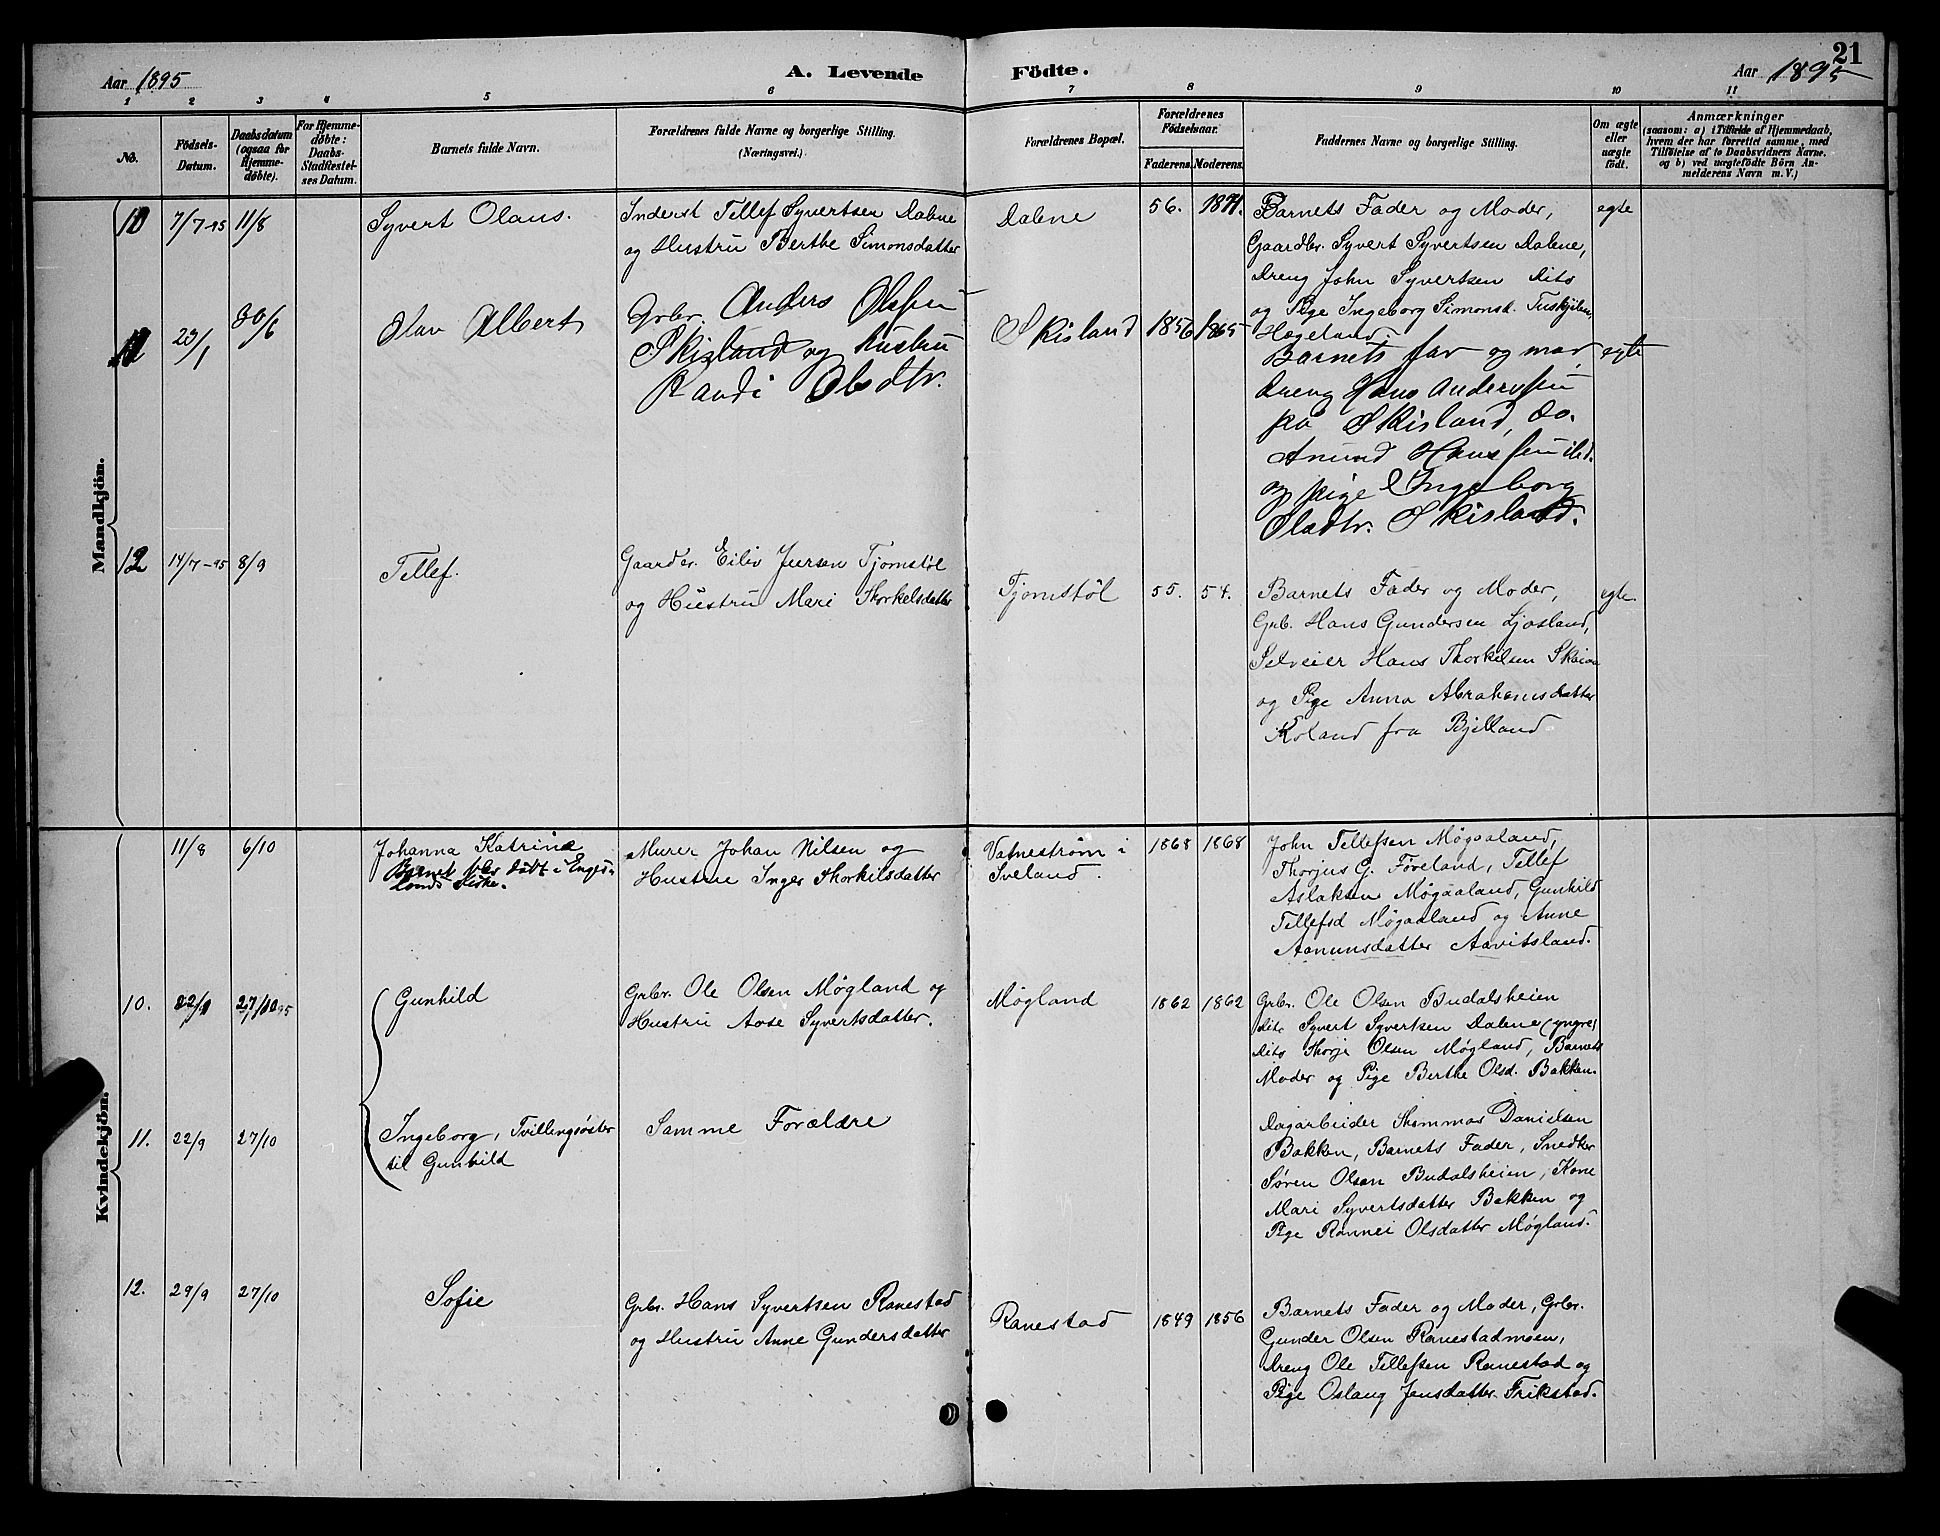 21
Aar 1895
A. Levende
Födte.
Aar 1895
1 2 3 4 5 6 7 8 9 10 11
No.
Födsels-
Datum.
Daabsdatum
(ogsaa for
Hjemme-
döbte).
For Hjemme-
döbte:
Daabs-
Stadfæstel-
ses Datum.
Barnets fulde Navn.
Forældrenes fulde Navne og borgerlige Stilling.
(Næringsvei.)
Forældrenes Bopæl.
Forældrenes
Födselsaar.
Faderens. Moderens.
Faddernes Navne og borgerlige Stilling.
Om ægte
eller
uægte
födt.
Anmærkninger
(saasom: a) i Tilfælde af Hjemmedaab,
hvem der har forrettet samme, med
Tilföielse af to Daabsvidners Navne,
og b) ved uægtefödte Börn An-
melderens Navn m. V.)
Mandkjön.
10 7/7-95 11/8
Syvert Olaus.
Inderst Tellef Syvertsen Dalene
og Hustru Berthe Simonsdatter
Dalene
56. 1871.
Barnets Fader og Moder,
Gaardbr. Syvert Syvertsen Dalene,
Dreng John Syvertsen Dits
og Pige Ingeborg Simonsd.
Hægeland.
egte
11 23/1 30/6
Olav Albert
Grbr. Anders Olsen
Skisland og hustru
Randi Olsdtr.
Skisland
1856 1865
Barnets far og mor
dreng Hans Andersen
på Skisland, do.
Anund Hanssen ibd.
og pige Ingeborg
Olsdtr. Skisland.
egte
12 14/7-95 8/9
Tellef.
Gaardbr. Eiliv Jversen Tjomstøl
og Hustru Mari Thorkelsdatter
Tjomstøl
55. 54.
Barnets Fader og Moder,
Grb. Hans Gundersen Ljosland,
Selveier Hans Thorkelsen
og Pige Anna Abrahamsdatter
Roland fra Bjelland
egte
Kvindekjön.
11/8 6/10
Johanna Katrine
Barnet blev døbt i Enges-
lands Kirke.
Murer Johan Nilsen og
Hustru Inger Thorkilsdatter
Vatnestrøm i
Iveland.
1868 1868
John Tellefsen Møgaaland,
Thorjus G. Föreland, Tellef
Aslaksen Møgaaland, Gunhild
Tellefsd Møgaaland og Anne
Aanunsdatter Aavitsland.
10. 22/9 27/10 95
Gunhild
Grbr. Ole Olsen Møgland og
Hustru Aase Syvertsdatter.
Møgland
1862 1862
Grbr. Ole Olsen Budalsheien
dito Syvert Syvertsen Dalene (yngre)
dito Thorje Olsen Møgland, Barnets
Moder og Pige Berthe Olsd. Bakken.
11. 22/9 27/10
Ingeborg, Tvillingsøster
til Gunhild
Samme Forældre
Dagarbeider Thommas Danielsen
Bakken, Barnets Fader, Snedker
Søren Olsen Budalsheien, Kone
Mari Syvertsdatter Bakken og
Pige Rønnei Olsdatter Møgland.
12. 29/9 27/10
Sofie
Grbr. Hans Syvertsen Ranestad
og Hustru Anne Gundersdatter
Ranestad
1849 1856
Barnets Fader og Moder, Grbr.
Gunder Olsen Ranestadmoen,
dreng Ole Tellefsen Ranestad og
Pige Oslaug Jensdatter Frikstad.